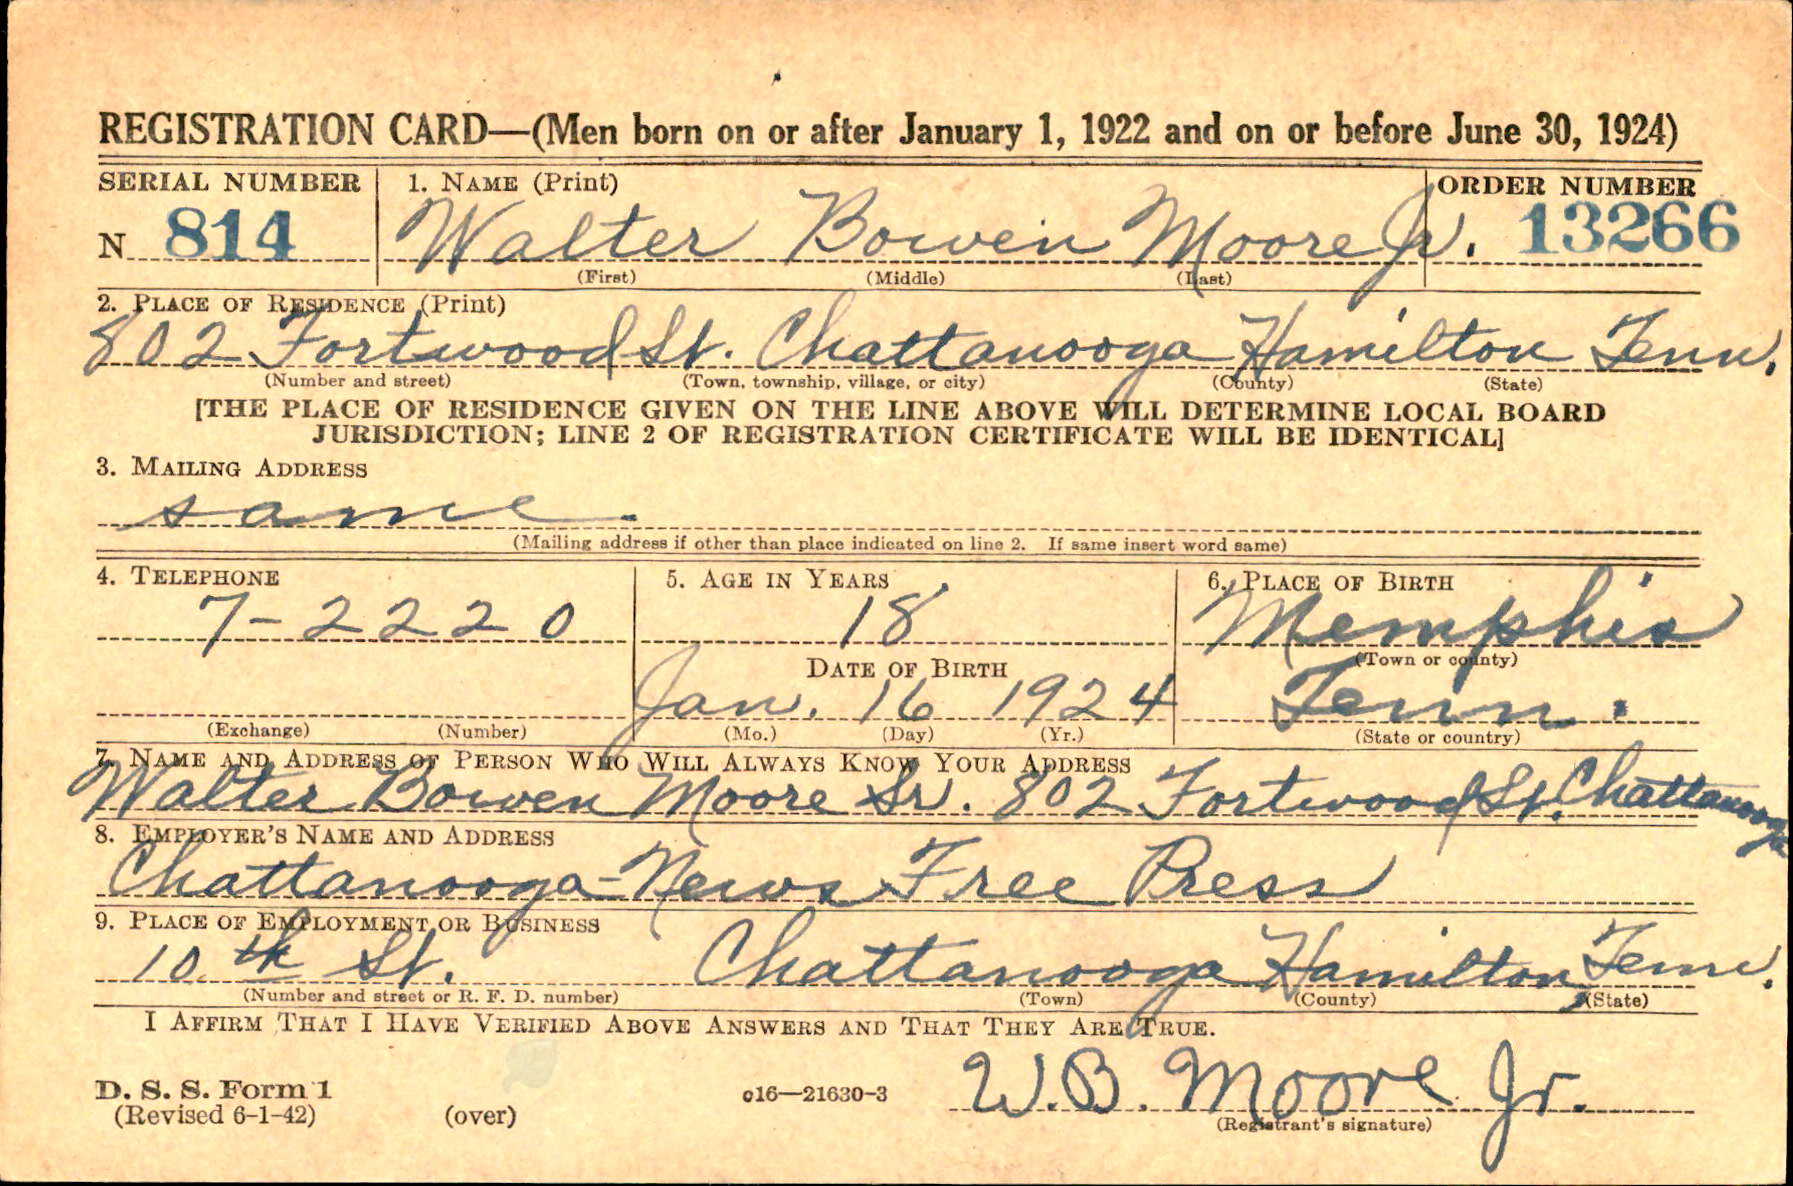 REGISTRATION CARD—(Men born on or after January 1, 1922 and on or before June 30, 1924)
SERIAL NUMBER 1. NAME (Print) ORDER NUMBER
N 814 Walter Bowen Moore Jr. 13266
(First) (Middle) (Last)
2. PLACE OF RESIDENCE (Print)
802 Fortwood St. Chattanooga Hamilton Tenn.
(Number and street) (Town, township, village, or city) (County) (State)
[THE PLACE OF RESIDENCE GIVEN ON THE LINE ABOVE WILL DETERMINE LOCAL BOARD
JURISDICTION; LINE 2 OF REGISTRATION CERTIFICATE WILL BE IDENTICAL]
3. MAILING ADDRESS
same
(Mailing address if other than place indicated on line 2. If same insert word same)
4. TELEPHONE 5. AGE IN YEARS 6. PLACE OF BIRTH
7-2220 18 Memphis
DATE OF BIRTH (Town or county)
Jan. 16 1924 Tenn.
(Exchange) (Number) (Mo.) (Day) (Yr.) (State or country)
7. NAME AND ADDRESS OF PERSON WHO WILL ALWAYS KNOW YOUR ADDRESS
Walter Bowen Moore Sr. 802 Fortwood St. Chattanooga
8. EMPLOYER'S NAME AND ADDRESS
Chattanooga-News Free Press
9. PLACE OF EMPLOYMENT OR BUSINESS
10th St. Chattanooga Hamilton, Tenn.
(Number and street or R. F. D. number) (Town) (County) (State)
I AFFIRM THAT I HAVE VERIFIED ABOVE ANSWERS AND THAT THEY ARE TRUE.
D. S. S. Form 1
(Revised 6-1-42) (over) c16—21630-3 W.B. Moore Jr.
(Registrant's signature)